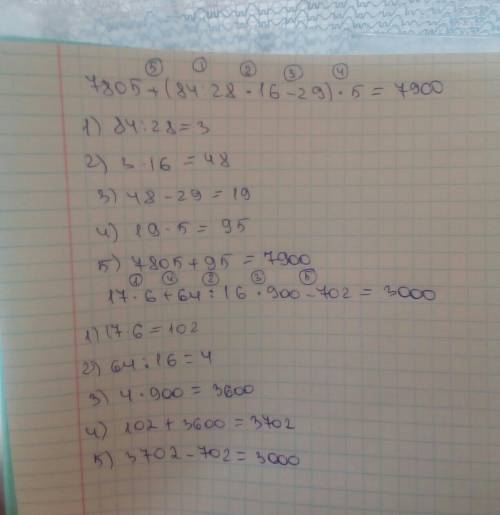 ⑤ ① ② ③ ④
7805+(84:28·16-29)·5=7900
1) 84:28=3
2) 3·16=48
3) 48-29=19
4) 19·5=95
5) 7805+95=7900
① ④ ② ③ ⑤
17·6+64:16·900-702=3000
1) 17·6=102
2) 64:16=4
3) 4·900=3600
4) 102+3600=3702
5) 3702-702=3000